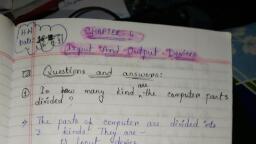 H.W
Date
CHAPTER 6
Input And Output Devices
Questions and answers:
① In how many kind are the computer parts
divided ?
→ The parts of computer are divided into
2 kinds. They are -
1) Input device